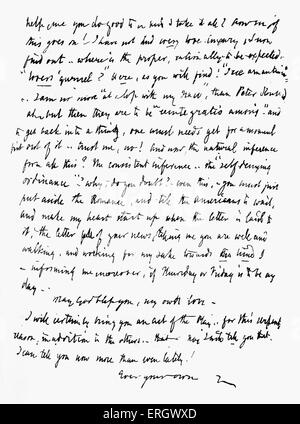 help me you do good to un mind I take it all? How much of
this goes on! I have not had every love-luxury, I now
find out .. where is the proper, rationally- to be expected-
"lovers' quarrel"? Here, as you will find! "Iræ amantium" ..
.. I am no more "at a loss with my Naso," than Peter Ronsard
ah, but then they are to be "reintegratio amoris" - and
to get back into a thing, one must needs get for a moment
first out of it .. trust me, no! And now, the natural inference
from all this? The consistent inference .. the "self-denying
ordinance"? Why, do you doubt? even this, - you must just
put aside the Romance, and tell the Americans to wait,
and make my heart start up when the letter is laid to
it; the letter full of your news, telling me you are well and
walking, and working for my sake towards the time I
- informing me, moreover, if Thursday or Friday is to be my
day - .
May God bless you, my own love -
I will certainly bring you an Act of the Play .. for this serpent's
reason, in addition to the others .. that - No, I will tell you that -
I can tell you now more than even lately!
Ever your own
alamy
Image ID: ERGWXD
www.alamy.com